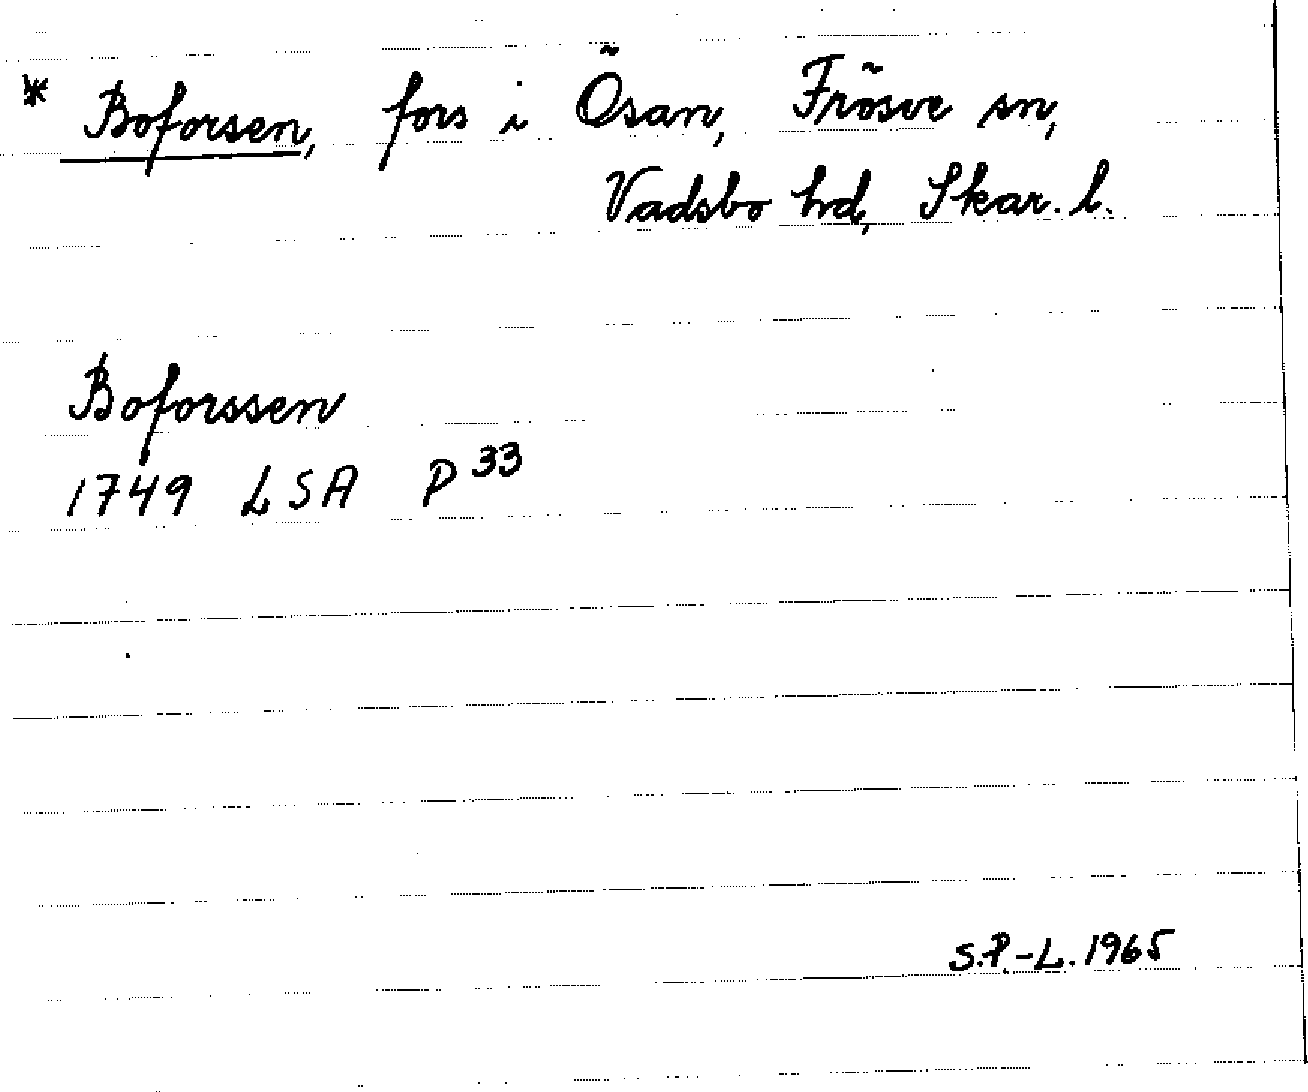 * Boforsen, fors i Ösan, Frösve sn,
Vadsbo hd, Skar. l.
Boforssen
1749 LSA P 33
S.P.-L. 1965